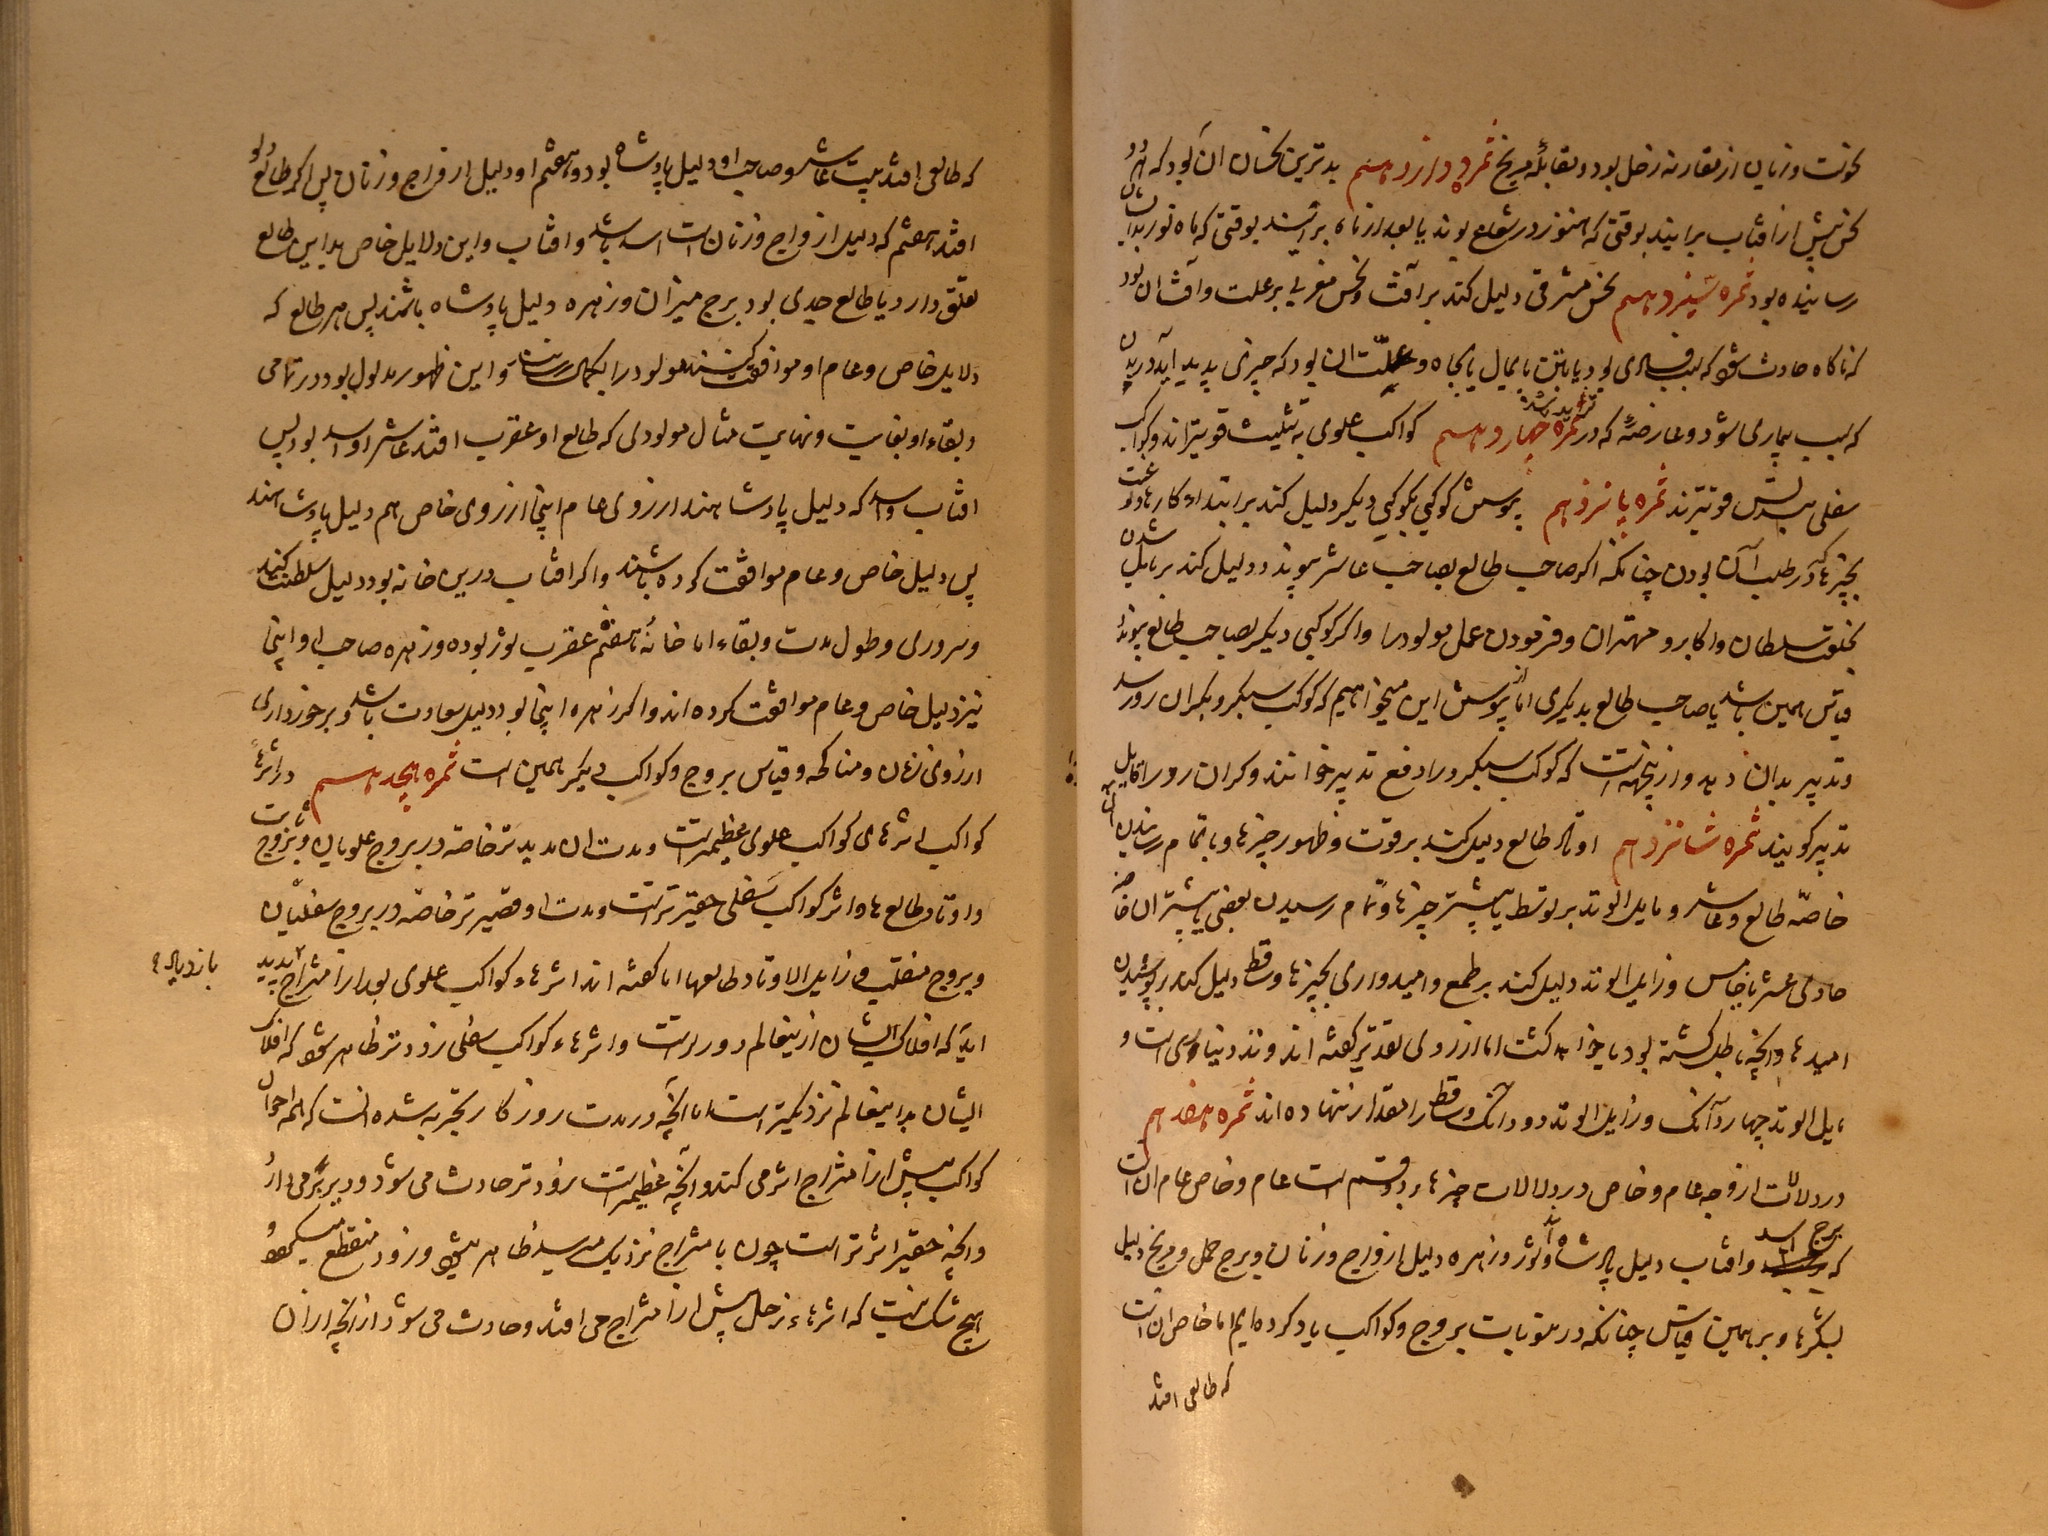 نحوست و زیان از مقارنه زحل بود و مقابله مریخ ثمره دوازدهم بدترین نحسان آن بود که هر دو
نحس پیش از افتاب برایند بوقتی که هنوز در شعاع بوند یا بعد از ماه برایند بوقتی که ماه نور بدیشان
رسانیده بود ثمره سیزدهم نحس مشرقی دلیل کند بر آفت و نحس مغربی بر علت و آفت آن بود
که ناکاه حادث شود که سبب فسادی بود یا بتن یا بمال یا بجاه و علت ان بود که چیزی پدید آید در بدن
که سبب بیماری شود و عارضه که در ثمره چهاردهم کواکب علوی به تثلیث قویتراند و کواکب
سفلی بتسدیس قویترند ثمره پانزدهم پیوستن کوکبی بکوکبی دیکر دلیل کند بر ابتداء کارها و رغبت
بچیزها و در طلب آن بودن چنانکه اکر صاحب طالع بصاحب عاشر پیوندد دلیل کند بر مایل شدن
بخدمت سلطان و اکابر و مهتران و فرمودن عمل مولود را و اکر کوکبی دیکر بصاحب طالع پیوندد
قیاس همین باشد یا صاحب طالع بدیکری اما از پیوستن این میخواهیم که کوکب سبکرو بکران رو رسد
و تدبیر بدان دهد و ازینجهت است که کوکب سبکرو را دفع تدبیر خوانند و کران رو را قابل
تدبیر کویند ثمره شانزدهم اوتاد طالع دلیل کند بر قوت و ظهور چیزها و بتمام رسیدن
خاصه طالع و عاشر و مایل الوتد بر توسط یا بیشتر چیزها و تمام رسیدن بعضی یا بیشتر ان خاصه
حادی عشر یا خامس و زایل الوتد دلیل کند بر طمع و امیدواری بچیزها و ساقط دلیل کند بر پوشیدن
امیدها و انچه باطل کشته بود یا خواهد کشت اما از روی تقدیر کفته اند وتد دنیا و سی است و
مایل الوتد چهار دانک و زایل الوتد دو دانک و ساقط را مقدار ننهاده اند ثمره هفدهم
در دلالات از وجه عام و خاص در دلالات چیزها بر دو قسم است عام و خاص عام ان است
که برج اسد و افتاب دلیل پادشاه اند و ثور و زهره دلیل ازواج و زنان و برج حمل و مریخ دلیل
لشکرها و بر همین قیاس چنانکه در منوبات بروج و کواکب یاد کرده ایم اما خاص ان است
که طالعی افتد
که طالعی افتد بیت عاشر و صاحب او دلیل پادشاه بود و هفتم او دلیل ازواج و زنان پس اکر طالع دلو
افتد هفتم که دلیل ازواج و زنان است اسد باشد و افتاب و این دلایل خاص بدین طالع
تعلق دارد یا طالع جدی بود برج میزان و زهره دلیل پادشاه باشند پس هر طالع که
دلایل خاص و عام او موافقت کنند مولود را بکمال رساند و این ظهور مدلول بود در تمامی
و بقاء او بغایت و نهایت مثال مولودی که طالع او عقرب افتد عاشر او اسد بود پس
افتاب و اسد که دلیل پادشاهند از روی عام اینجا از روی خاص هم دلیل پادشاهند
پس دلیل خاص و عام موافقت کرده باشند و اکر افتاب درین خانه بود دلیل سلطنت کند
و سروری و طول مدت و بقاء اما خانه هفتم عقرب ثور بوده و زهره صاحب او اینجا
نیز دلیل خاص و عام موافقت کرده اند و اکر زهره اینجا بود دلیل سعادت باشد و برخورداری
از روی زنان و مناکحه و قیاس بروج و کواکب دیکر همین است ثمره هجدهم در اثرهاء
کواکب اثرهای کواکب علوی عظیمتر است و مدت ان مدیدتر خاصه در بروج علویان و بروج ثابت
و اوتاد طالع ها و اثر کواکب سفلی حقیرتر است و مدت او قصیرتر خاصه در بروج سفلیان
و بروج منقلب و زایل الاوتاد طالعها اما کفته اند اثرهاء کواکب علوی بعد از امتزاج پدید
بازدیاد ؟
اید که افلاک ایشان ازینعالم دورتر است و اثرهاء کواکب سفلی زودتر ظاهر شود که افلاک
ایشان بدینعالم نزدیکتر است اما انچه در مدت روزکار تجربه شده انست که همه احوال
کواکب پیش از امتزاج اثر می کند و آنچه عظیمتر است زودتر حادث می شود و دیرتر می دارد
و انچه حقیر اثرتر است چون بامتزاج نزدیک میرسد ظاهر میشود و زود منقطع میکردد
هیچ شک نیست که اثرهاء زحل پیش از امتزاج می افتد و حادث می شود از انچه از ان